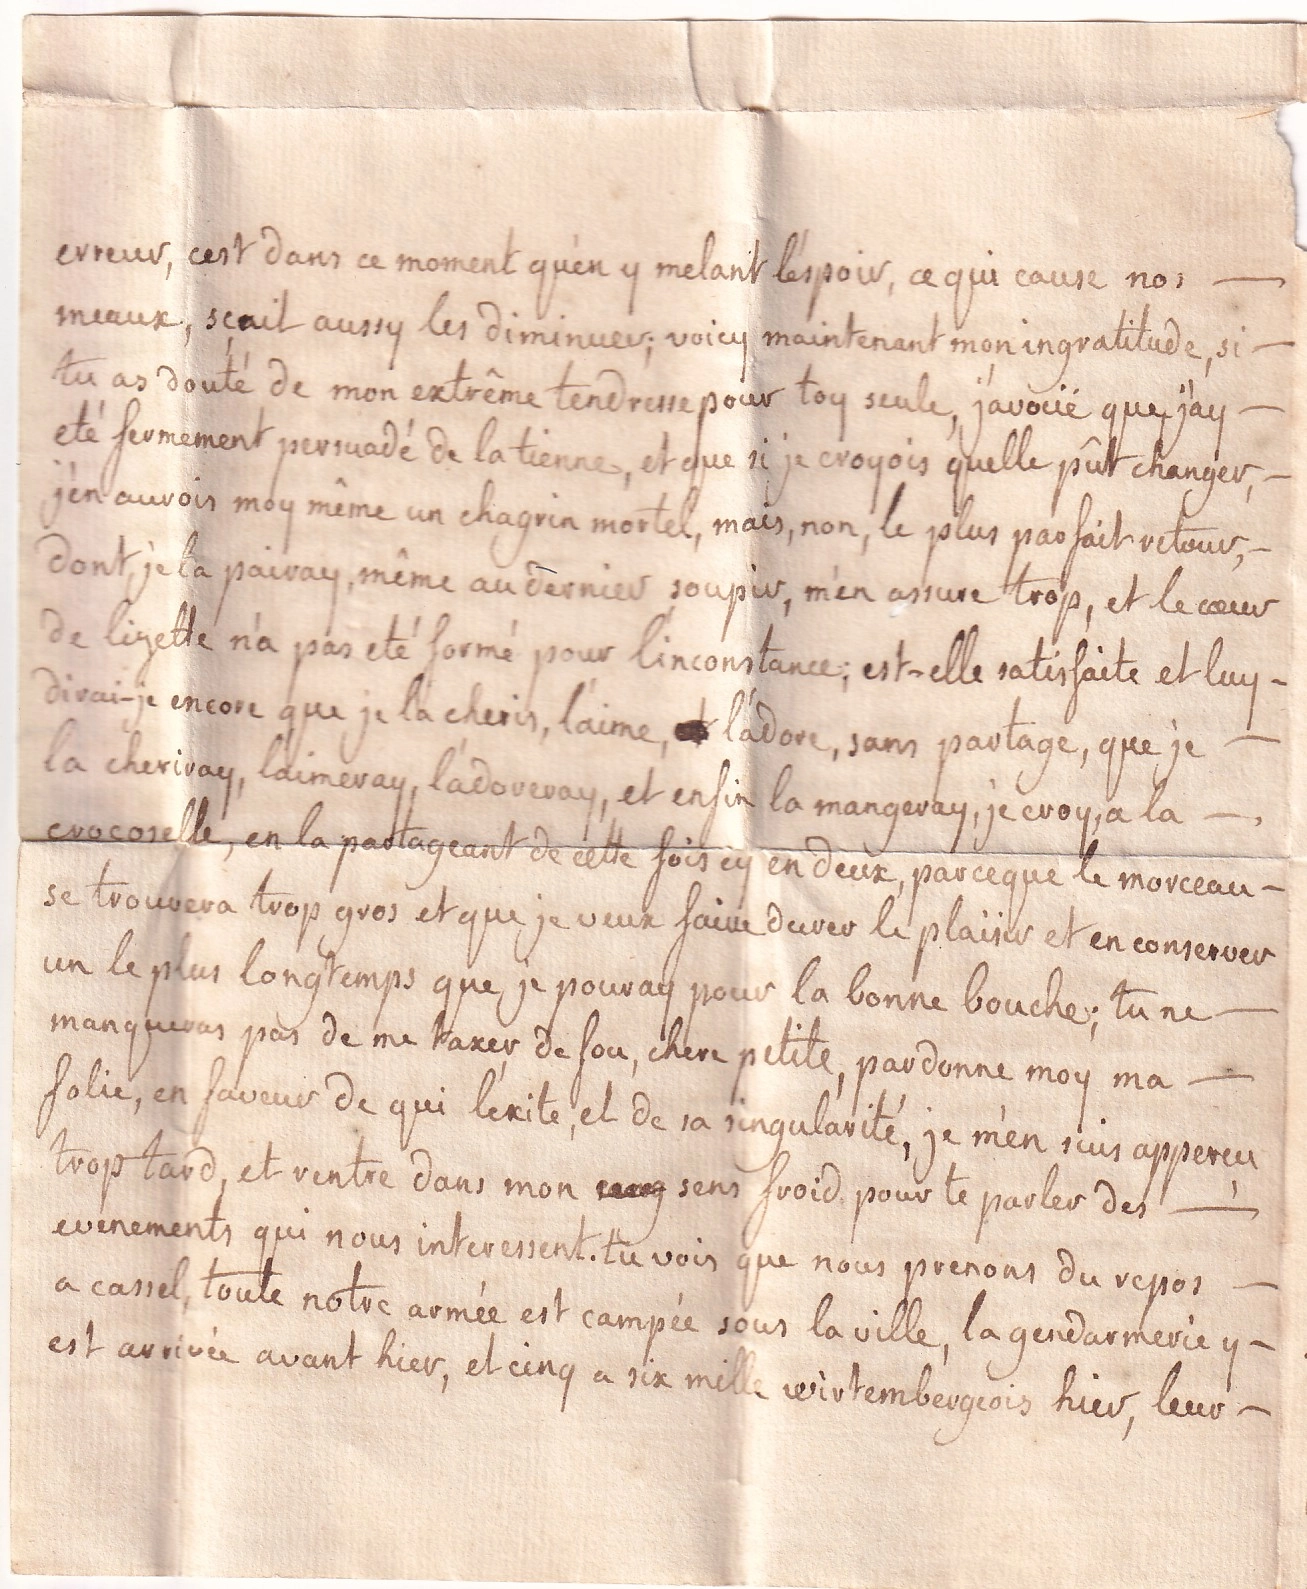 erreur, cest dans ce moment qu'en y melant l'espoir, ce qui cause nos —
meaux, sçait aussy les diminuer; voicy maintenant mon ingratitude, si —
tu as douté de mon extrême tendresse pour toy seule, j'avoüe que j'ay —
eté fermement persuadé de la tienne, et que si je croyois quelle pût changer, —
j'en aurois moy même un chagrin mortel, mais, non, le plus parfait retour, —
dont je la pairay, même au dernier soupir, m'en assure trop, et le cœur
de lizette n'a pas eté formé pour l'inconstance; est-elle satisfaite et luy -
dirai-je encore que je la cheris, l'aime, l'adore, sans partage, que je —
la cheriray, l'aimeray, l'adoreray, et enfin la mangeray, je croy, a la —
crocoselle, en la partageant de cette fois cy en deux, parceque le morceau —
se trouvera trop gros et que je veux faire durer le plaisir et en conserver
un le plus longtemps que je pouray pour la bonne bouche; tu ne —
manqueras pas de me taxer de fou, chere petite, pardonne moy ma —
folie, en faveur de qui l'exite, et de sa singularité, je m'en suis apperçu
trop tard, et rentre dans mon sens froid pour te parler des —
evenements qui nous interessent. tu vois que nous prenons du repos —
a cassel, toute notre armée est campée sous la ville, la gendarmerie y —
est arrivée avant hier, et cinq a six mille wirtembergeois hier, leur —